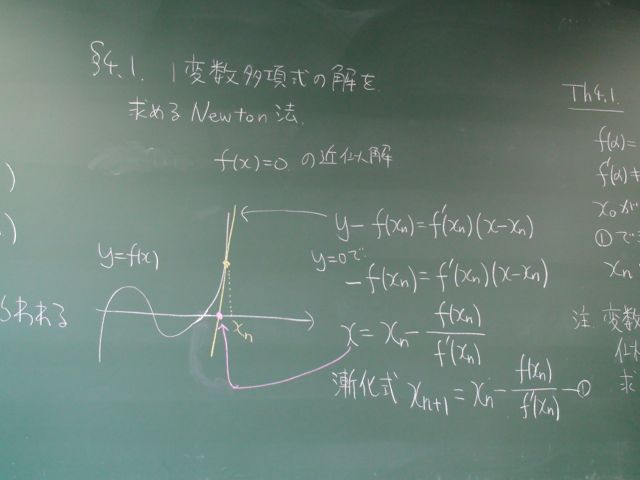 §4.1. 1変数多項式の解を
求める Newton 法.
f(x)=0 の近似解
y=f(x)
xn
y-f(xn)=f'(xn)(x-xn)
y=0で
-f(xn)=f'(xn)(x-xn)
x=xn-f(xn)/f'(xn)
漸化式 xn+1=xn-f(xn)/f'(xn)-①
)
)
われる
Th4.1.
f(α)=
f'(α)≠
x0が
①で
xn
注. 変数
求